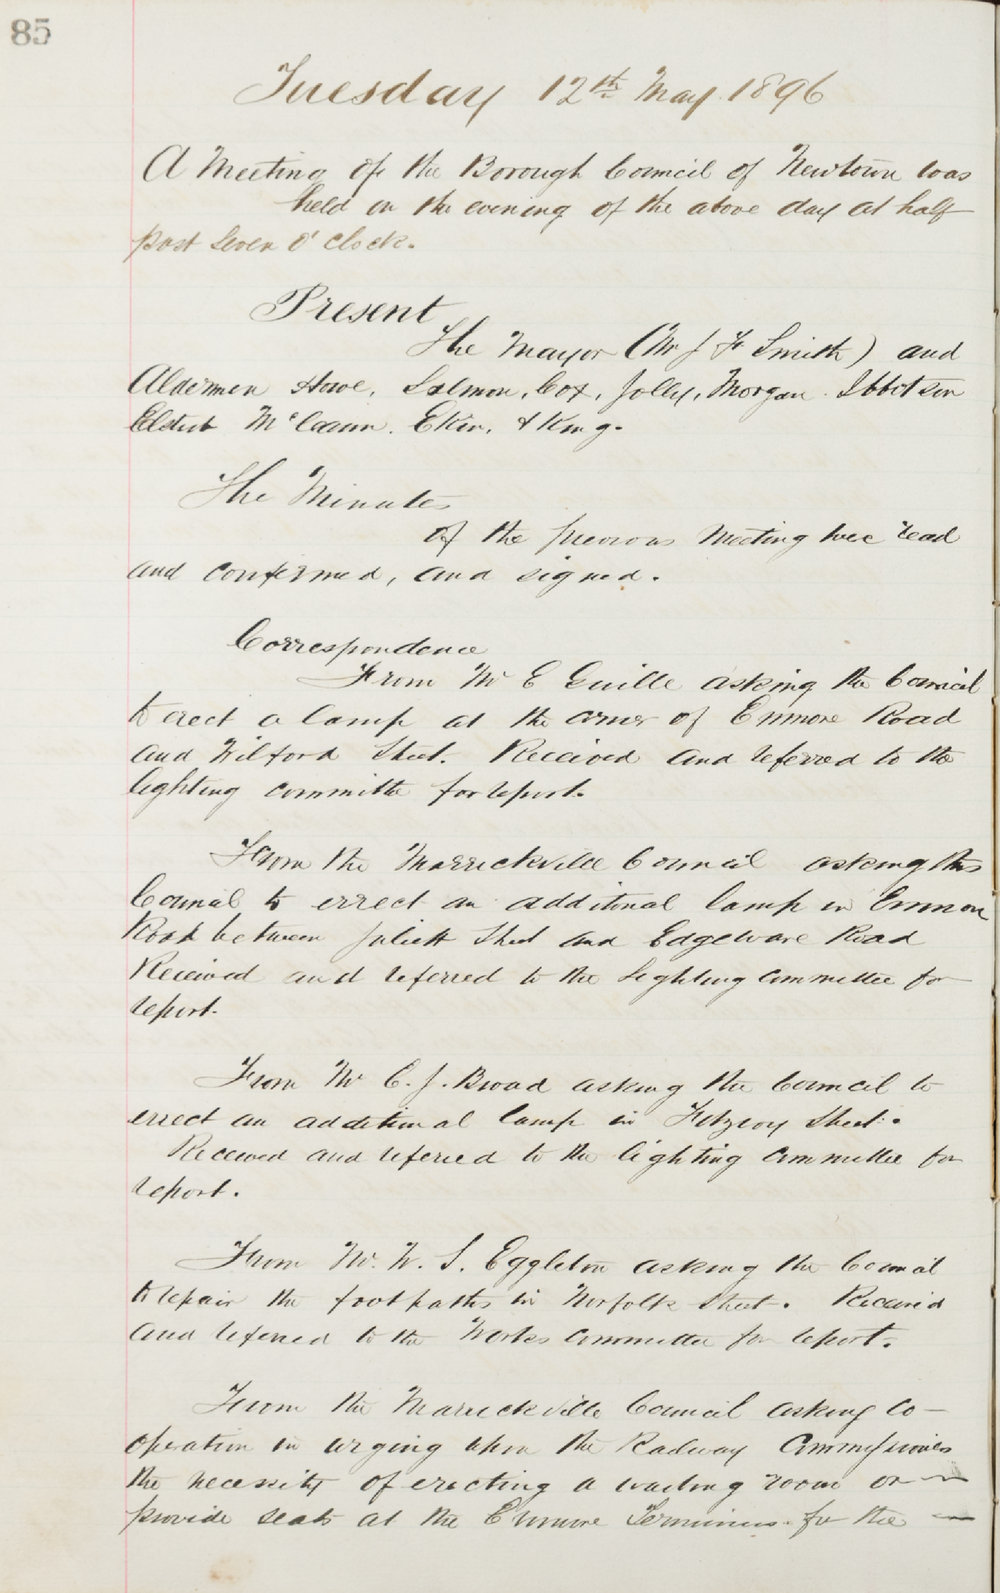 85
Tuesday 12th May. 1896
A Meeting of the Borough Council of Newtown was
held on the evening of the above day at half
past seven o' clock.
Present
The Mayor (Mr J F Smith) and
Aldermen Howe, Salmon, Cox, Jolly, Morgan. Ibbitson
McCann. Ekin. & King.
The Minutes
of the previous Meeting were read
and confirmed, and signed.
Correspondence
From Mr E Guille asking the Council
to erect a lamp at the corner of Enmore Road
and Wilford Street. Received and referred to the
lighting committee for report.
From the Marrickville Council asking this
Council to errect an additional lamp in Enmore
Road between Juliett Street and Edgeware Road
Received and referred to the Lighting Committee for
report.
From Mr C. J. Broad asking the Council to
errect an additional lamp in Fitzroy Street.
Received and referred to the lighting Committee for
report.
From Mr. W. S. Eggleton asking the Council
to repair the footpaths in Norfolk Street. Received
and referred to the Works Committee for report.
From the Marrickville Council asking Co-
operation in urging upon the Railway Commissioners
the necessity of erecting a waiting room or
provide seats at the Enmore Terminus for the